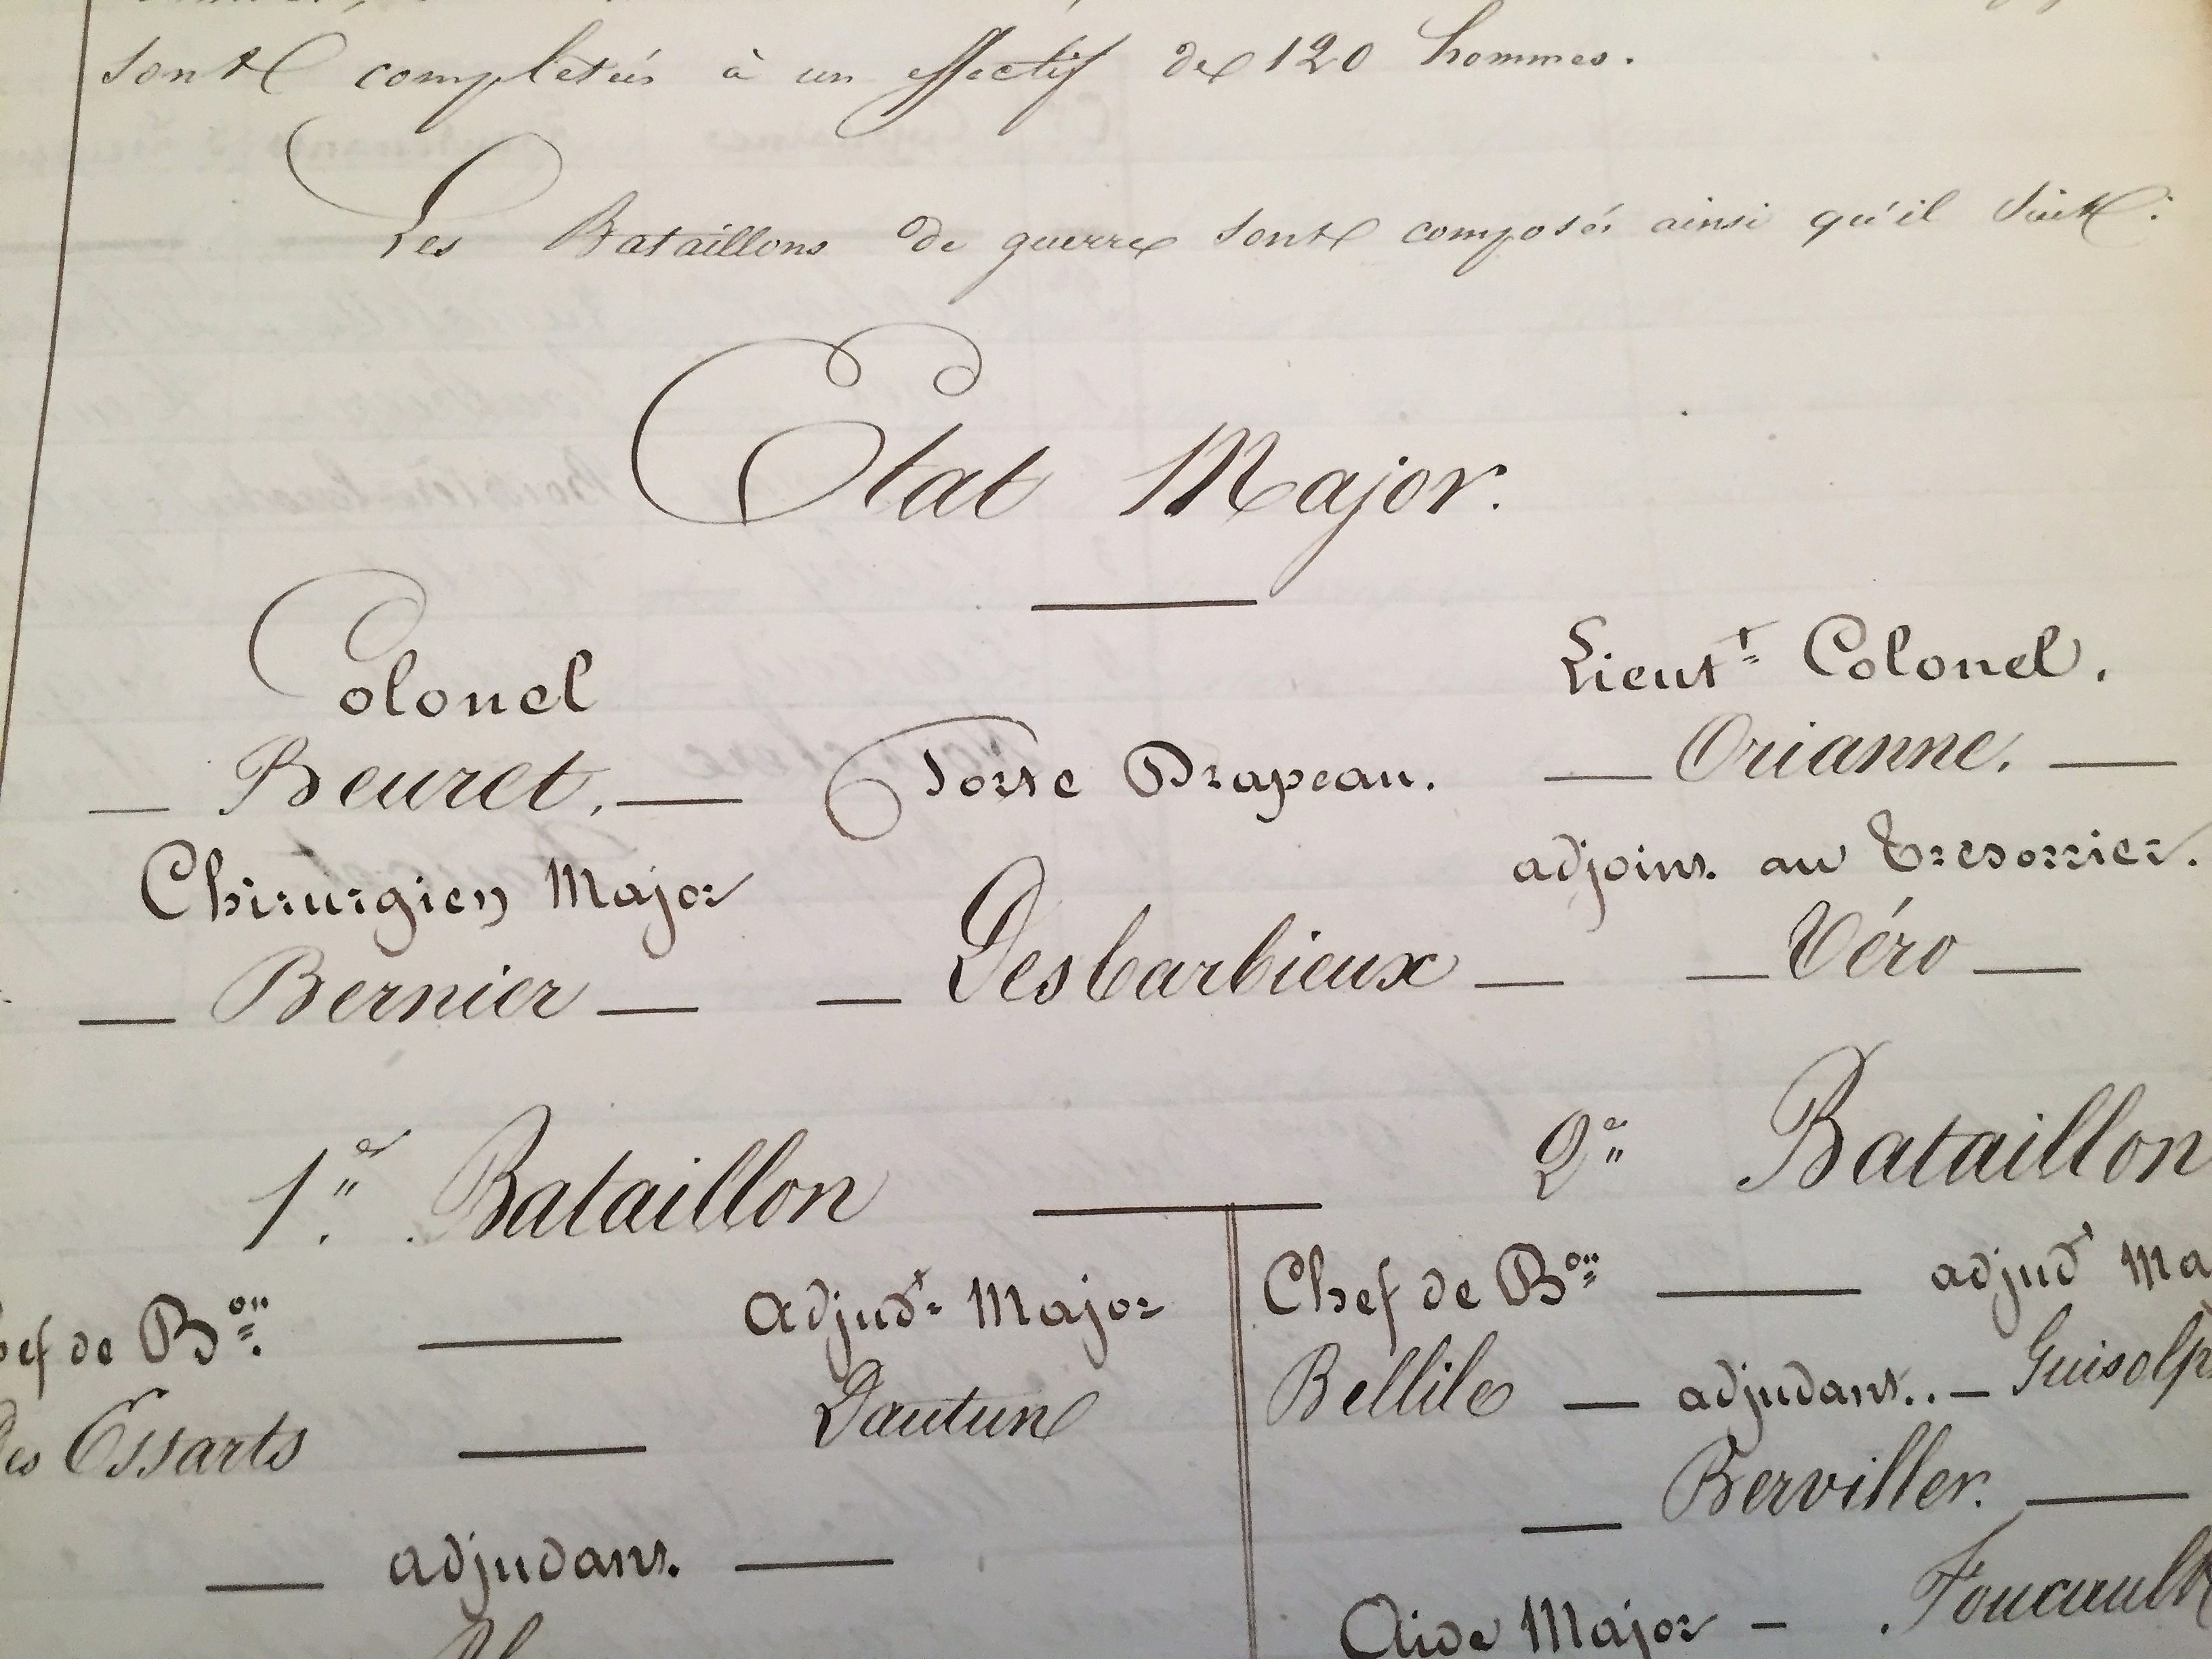 sont complétés à un effectif de 120 hommes.
Les Bataillons de guerre sont composés ainsi qu'il suit:
Etat Major.
Colonel
Lieut.t Colonel.
Beuret.
Porte Drapeau.
Orianne.
Chirurgien Major
adjoint au Tresorier.
Bernier
Desbarbieux
Véro
1.er Bataillon
2.e Bataillon
ef de B.on
Adjud.t Major
Chef de B.on
adjud.t Ma
Des Essarts
Dautun
Bellile
adjudant..
Guisolp
Berviller.
adjudant.
Aide Major
Foucault